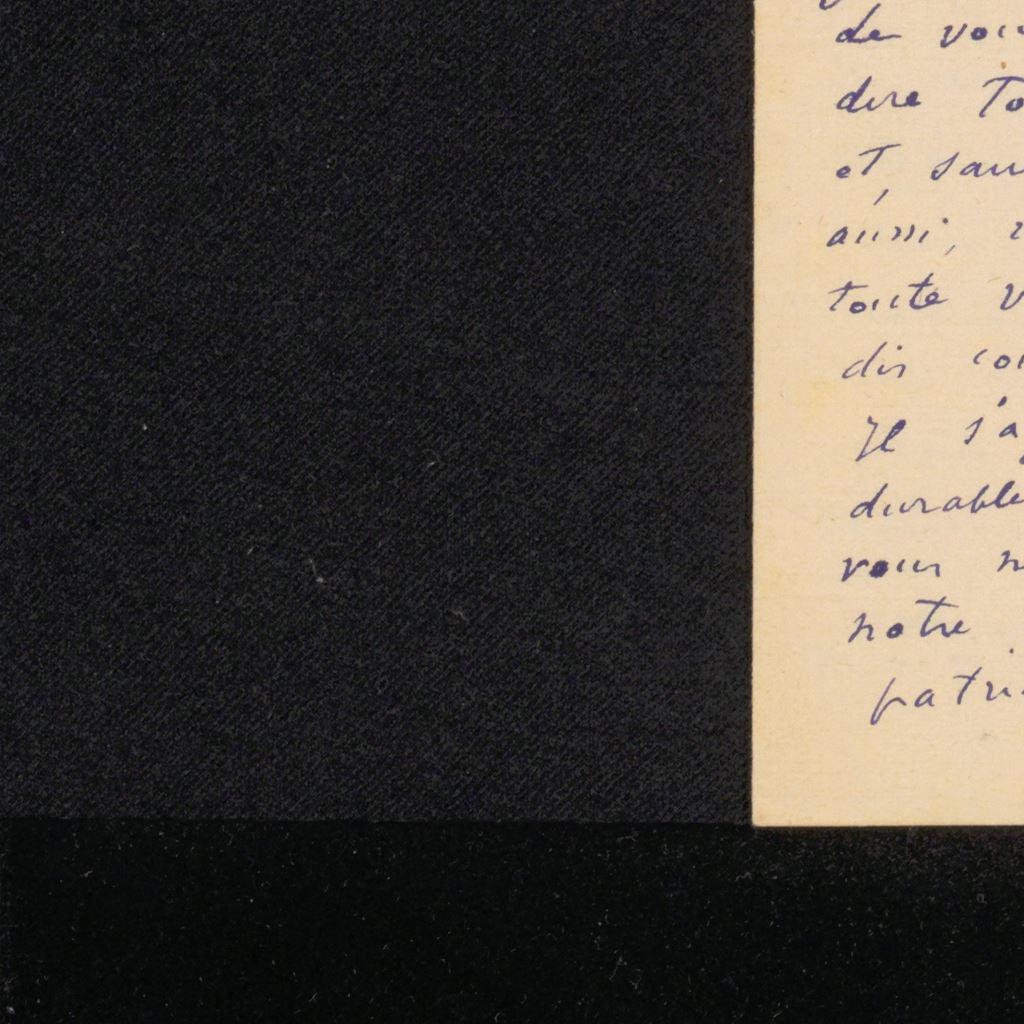 de vou
dire To
et, sau
aussi,
toute v
dis co
Il s'a
durable
vous n
notre
patri